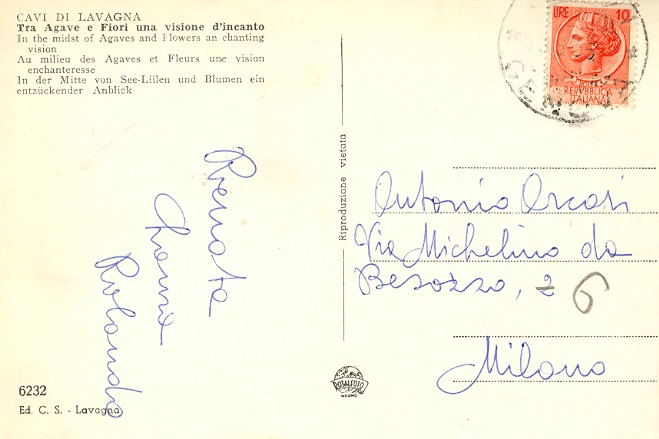 CAVI DI LAVAGNA
Tra Agave e Fiori una visione d'incanto
In the midst of Agaves and Flowers an chanting
vision
Au milieu des Agaves et Fleurs une vision
enchanteresse
In der Mitte von See-Liilen und Blumen ein
entzückender Anblick
LIRE 10
REPUBBLICA
ITALIANA
Renata
Rolando
Riproduzione vietata
Antonio Orcari
Via Michelino da
Besozzo, 2 6
Milano
6232
Ed. C. S. - Lavagna
ROTALFOTO
MILANO